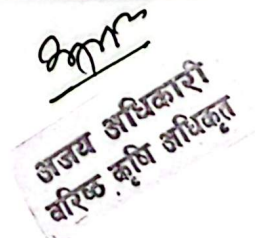 अजय अधिकारी
वरिष्ठ कृषि अधिकृत